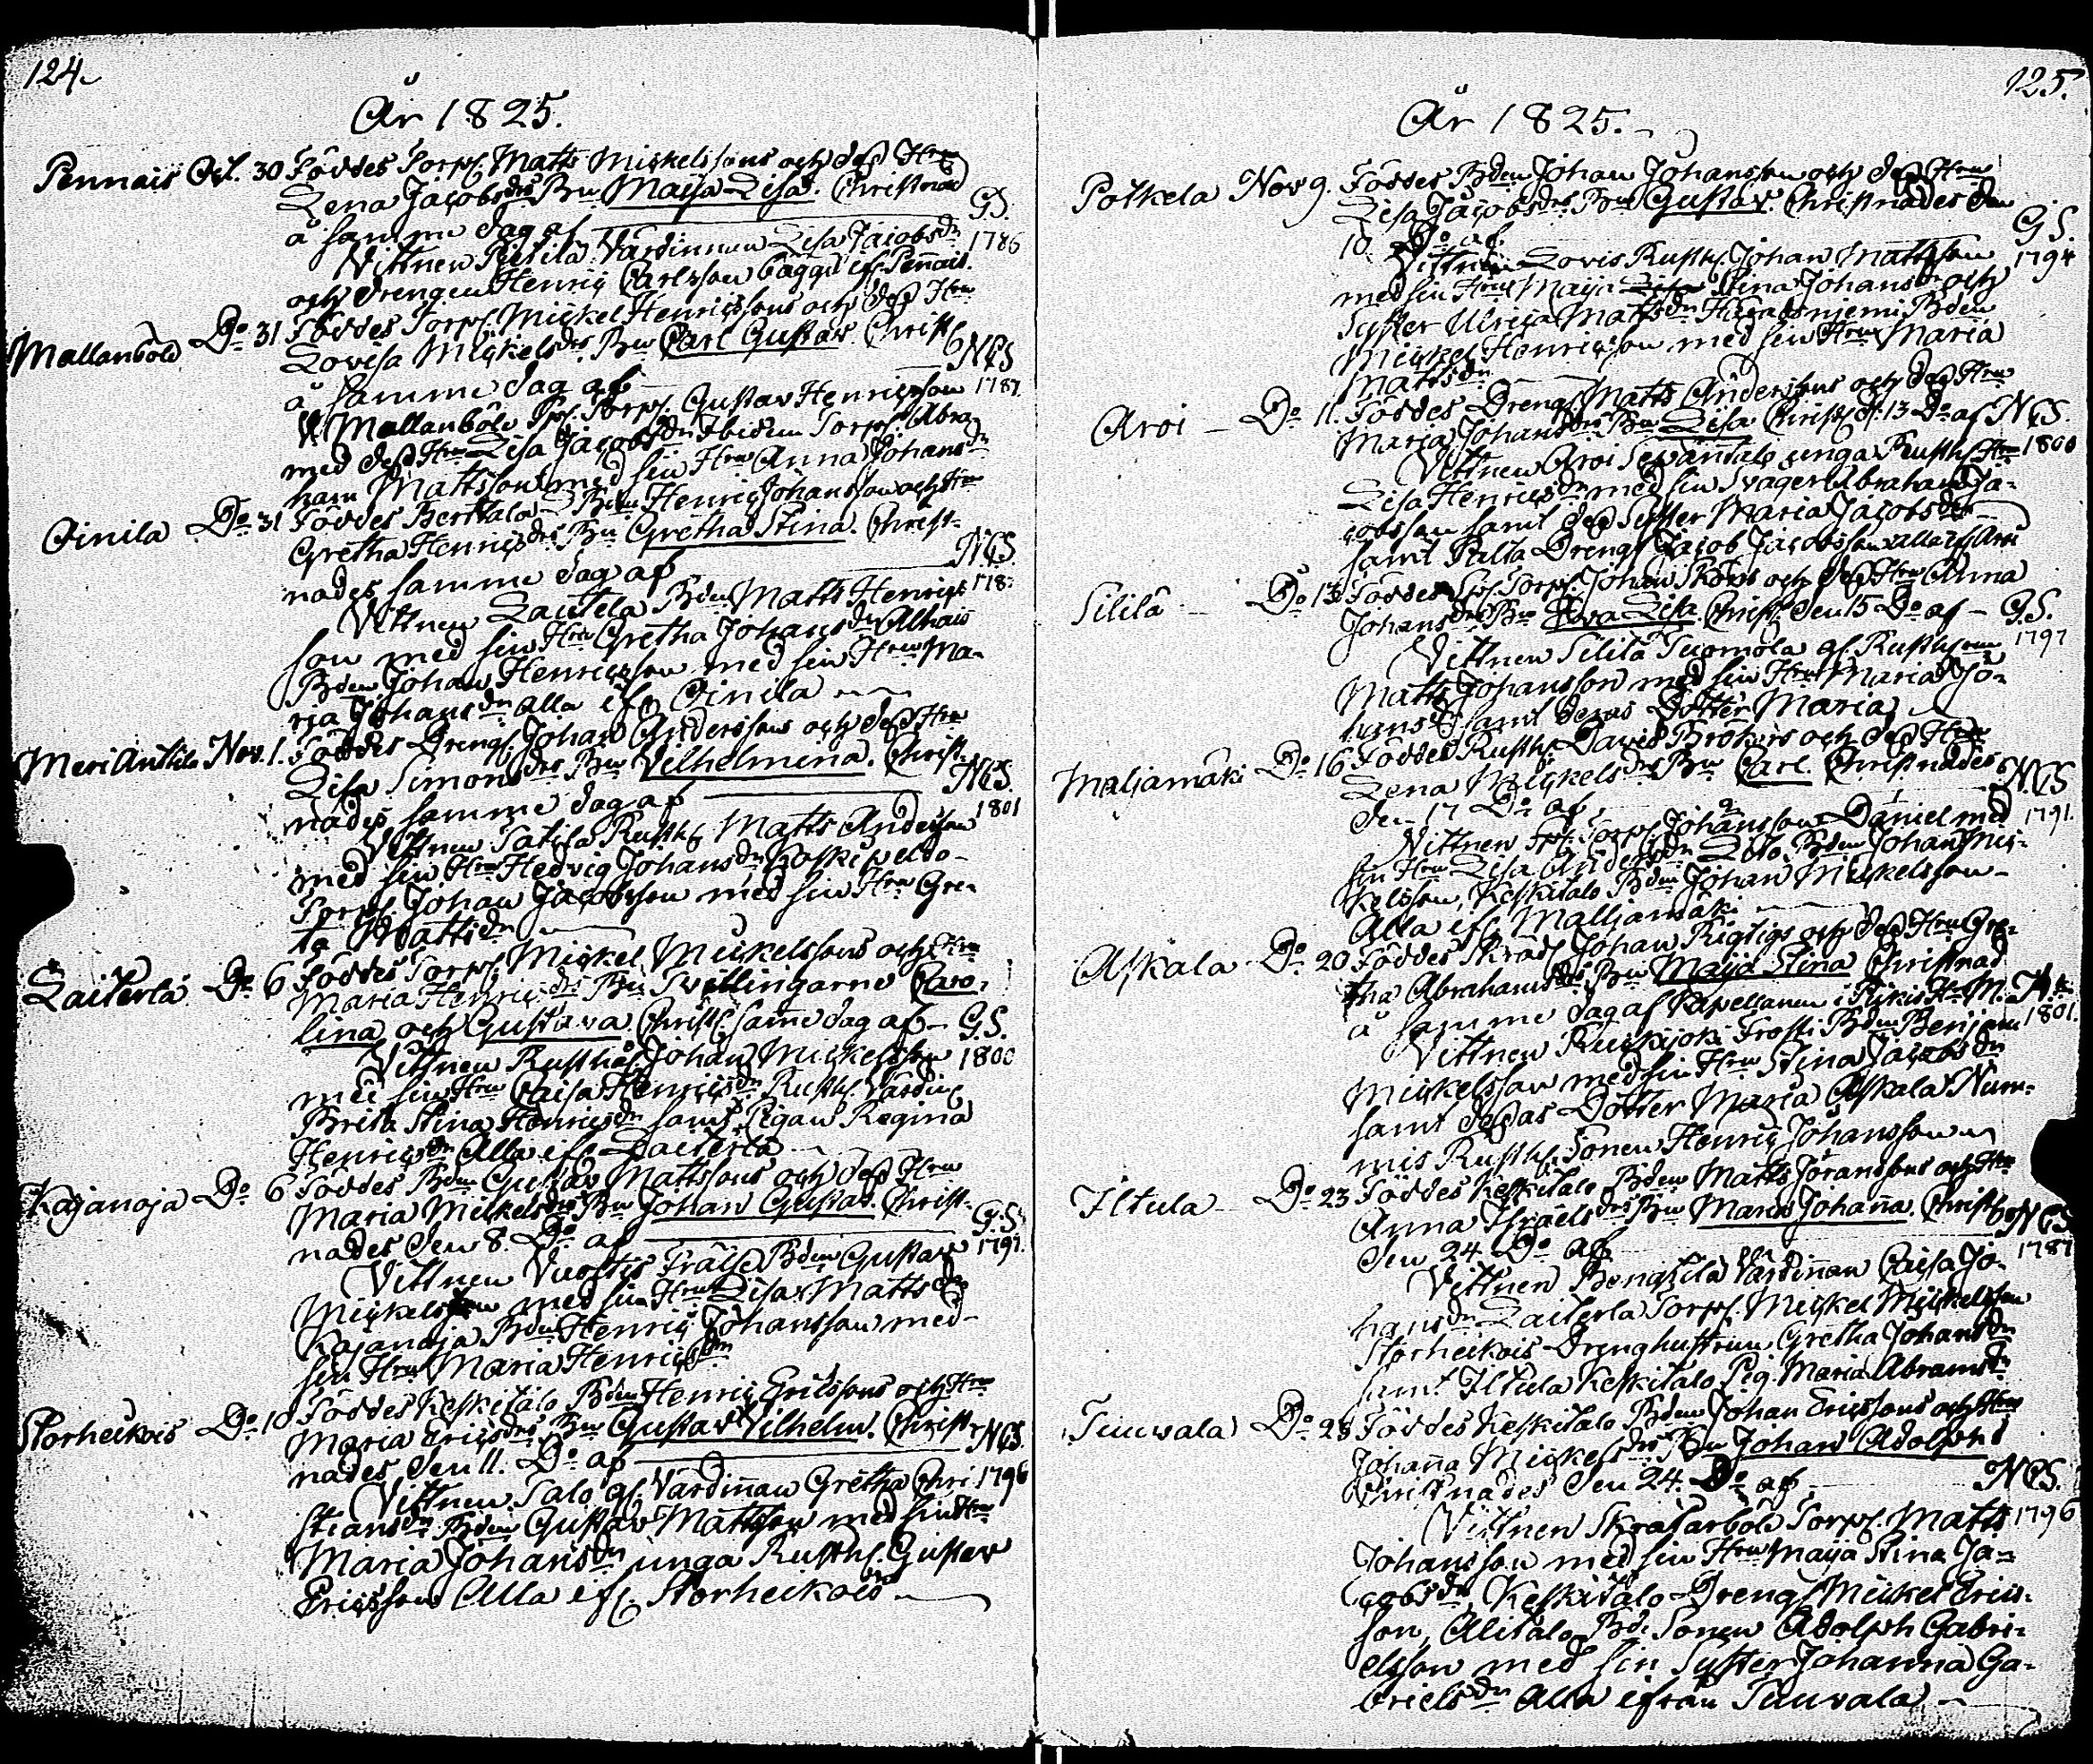 124.
År 1825.
Pennais Oct. 30 Föddes Torp. Matts Mickelssons och dess Hru
Lena Jacobsdrs Bn Maija Lisa. Christnad
å samme dag af G.S.
Vittnen Värdinnan Lisa Jacobsdr 1786
och drengen Henric Carlsson Bagge ifr. Pennais.
Mallanböle Do 31 Föddes Torp. Mickel Henricssons och dess Hru
Lovisa Mickelsdrs Bn Carl Gustav. Christ.
å samme dag af NGS
Mallanböle Torp. Gustav Henricsson 1787.
med dess Hru Lisa Jacobsdr Ibidem Torp. Abra-
ham Mattsson med sin Hru Anna Johansdr
Oinila Do 31 Föddes Berttala Bden Henric Johansson och Hru
Gretha Henricsdrs Bn Gretha Stina. Christ-
nades samme dag af NGS.
Vittnen Lautela Bden Matts Henrics 178
son med sin Hru Gretha Johansdr Alhais
Bden Johan Henricsson med sin Hru Ma-
ria Johansdr alla ifr. Oinila
Meri Anttila Nov. 1. Föddes Drengs. Johan Anderssons och dess Hru
Lisa Simonsdrs Bn Vilhelmina. Christ-
nades samme dag af NGS.
Vittnen Rusth. Matts Andersson 1801
med sin Hru Hedvig Johansdr
Torp. Johan Jacobsson med sin Hru Gre-
ta Mattsdr
Laiterla Do 6 Föddes Torp. Mickel Mickelssons och Hru
Maria Henricsdrs Bn Tvillingarne Caro-
lina och Gustava. Christ. same dag af G.S.
Vittnen Rusthål. Johan Mickelsson 1800
med sin Hru Caisa Henricsdr Rusth. Värdin.
Brita Stina Henricsdr samt Pigan Regina
Henricsdr Alla ifr. Laiterla
Kajanoja Do 6 Föddes Bden Gustav Mattssons och dess Hru
Maria Mickelsdrs Bn Johan Gustav. Christ-
nades den 8. Do af G.S.
Vittnen Vuoltis Frälse Bden Gustav 1797.
Mickelsson med sin Hru Lisa Mattsdr
Kajanoja Bden Henric Johansson med
sin Hru Maria Henricsdr
Storheikois Do 10 Föddes Keskitalo Bden Henric Ericssons och Hru
Maria Ericsdrs Bn Gustav Vilhelm. Christ-
nades den 11. Do af NGS.
Vittnen Salo gl. Värdinnan Gretha Chri- 1796
stiansdr Bden Gustav Mattsson med sin Hru
Maria Johansdr unga Rusth. Gustav
Ericsson Alla ifr. Storheikois
125.
År 1825.
Polkela Nov 9. Föddes Bden Johan Johansson och dess Hru
Lisa Jacobsdrs Bn Gustav. Christnades den
10. Do af G.S.
Vittnen Lovis Rusth. Johan Mattsson 1794
med sin Hru Maija Stina Johansdr och
Syster Ulrica Mattsdr Bden
Mickel Henricsson med sin Hru Maria
Mattsdr
Aroi Do 11. Föddes Drengs. Matts Anderssons och dess Hru
Maria Johansdrs Bn Lisa Christ. d. 13 Do af NGS.
Vittnen Aroi Sepäntalo unga Rusth. Hru 1800
Lisa Henricsdr med sin Svåger Abraham Ja-
cobsson samt dess Syster Maria Jacobsdr
samt Palta Drengs. Jacob Jacobsson alla ifr. Aroi
Sililä Do 13 Föddes Torp. Johan Sköns och dess Hru Anna
Johansdrs Bn Eva Lisa. Christ. den 15 Do af G.S.
Vittnen Sililä Tuomola gl. Rusth. 1797
Matts Johansson med sin Hru Maria Jo-
hansdr samt deras Dotter Maria
Maljamäki Do 16 Föddes Rusth. David Brokars och dess Hru
Lena Mickelsdrs Bn Carl. Christnades
den 17 Do af NGS
Vittnen Torp. Johansson Daniel med 1791.
sin Hru Lisa Andersdr Bden Johan Mic-
kelsson, Keskitalo Bden Johan Mickelsson
Alla ifr. Malljamäki
Askala Do 20 Föddes Skräd. Johan Rigtigs och dess Hru Gre-
tha Abrahamsdrs Bn Maija Stina Christnad
å samme dag af Kapellanen i Pijkis Hr M. 
Vittnen Ruskijoki Frosti Bden Benjam 1801.
Mickelsson med sin Hru Stina Jacobsdr
samt deras Dotter Maria Askala Num-
mis Rusth. Sonen Henric Johansson
Iltula Do 23 Föddes Keskitalo Bden Matts Joranssons och Hru
Anna Israelsdrs Bn Maria Johanna. Christ.
den 24 Do af NGS
Vittnen Bengtilä Värdinnan Caisa Jo- 1787
hansdr Laiterla Torp. Mickel Mickelsson
Storheikois Drenghustrun Gretha Johansdr
samt Iltula Keskitalo Pig. Maria Abramsdr
Tuuvala Do 23 Föddes Keskitalo Bden Johan Ericssons och Hru
Johanna Mickelsdrs Bn Johan Adolph
Christnades den 24. Do af NGS.
Vittnen Skrätarböle Torp. Matts 1796
Johansson med sin Hru Maija Stina Ja-
cobsdr, Keskitalo Drengs. Mickel Erics-
son, Alitalo Bd. Sonen Adolph Gabri-
elsson med sin Syster Johanna Ga-
brielsdr Alla ifrån Tuuvala